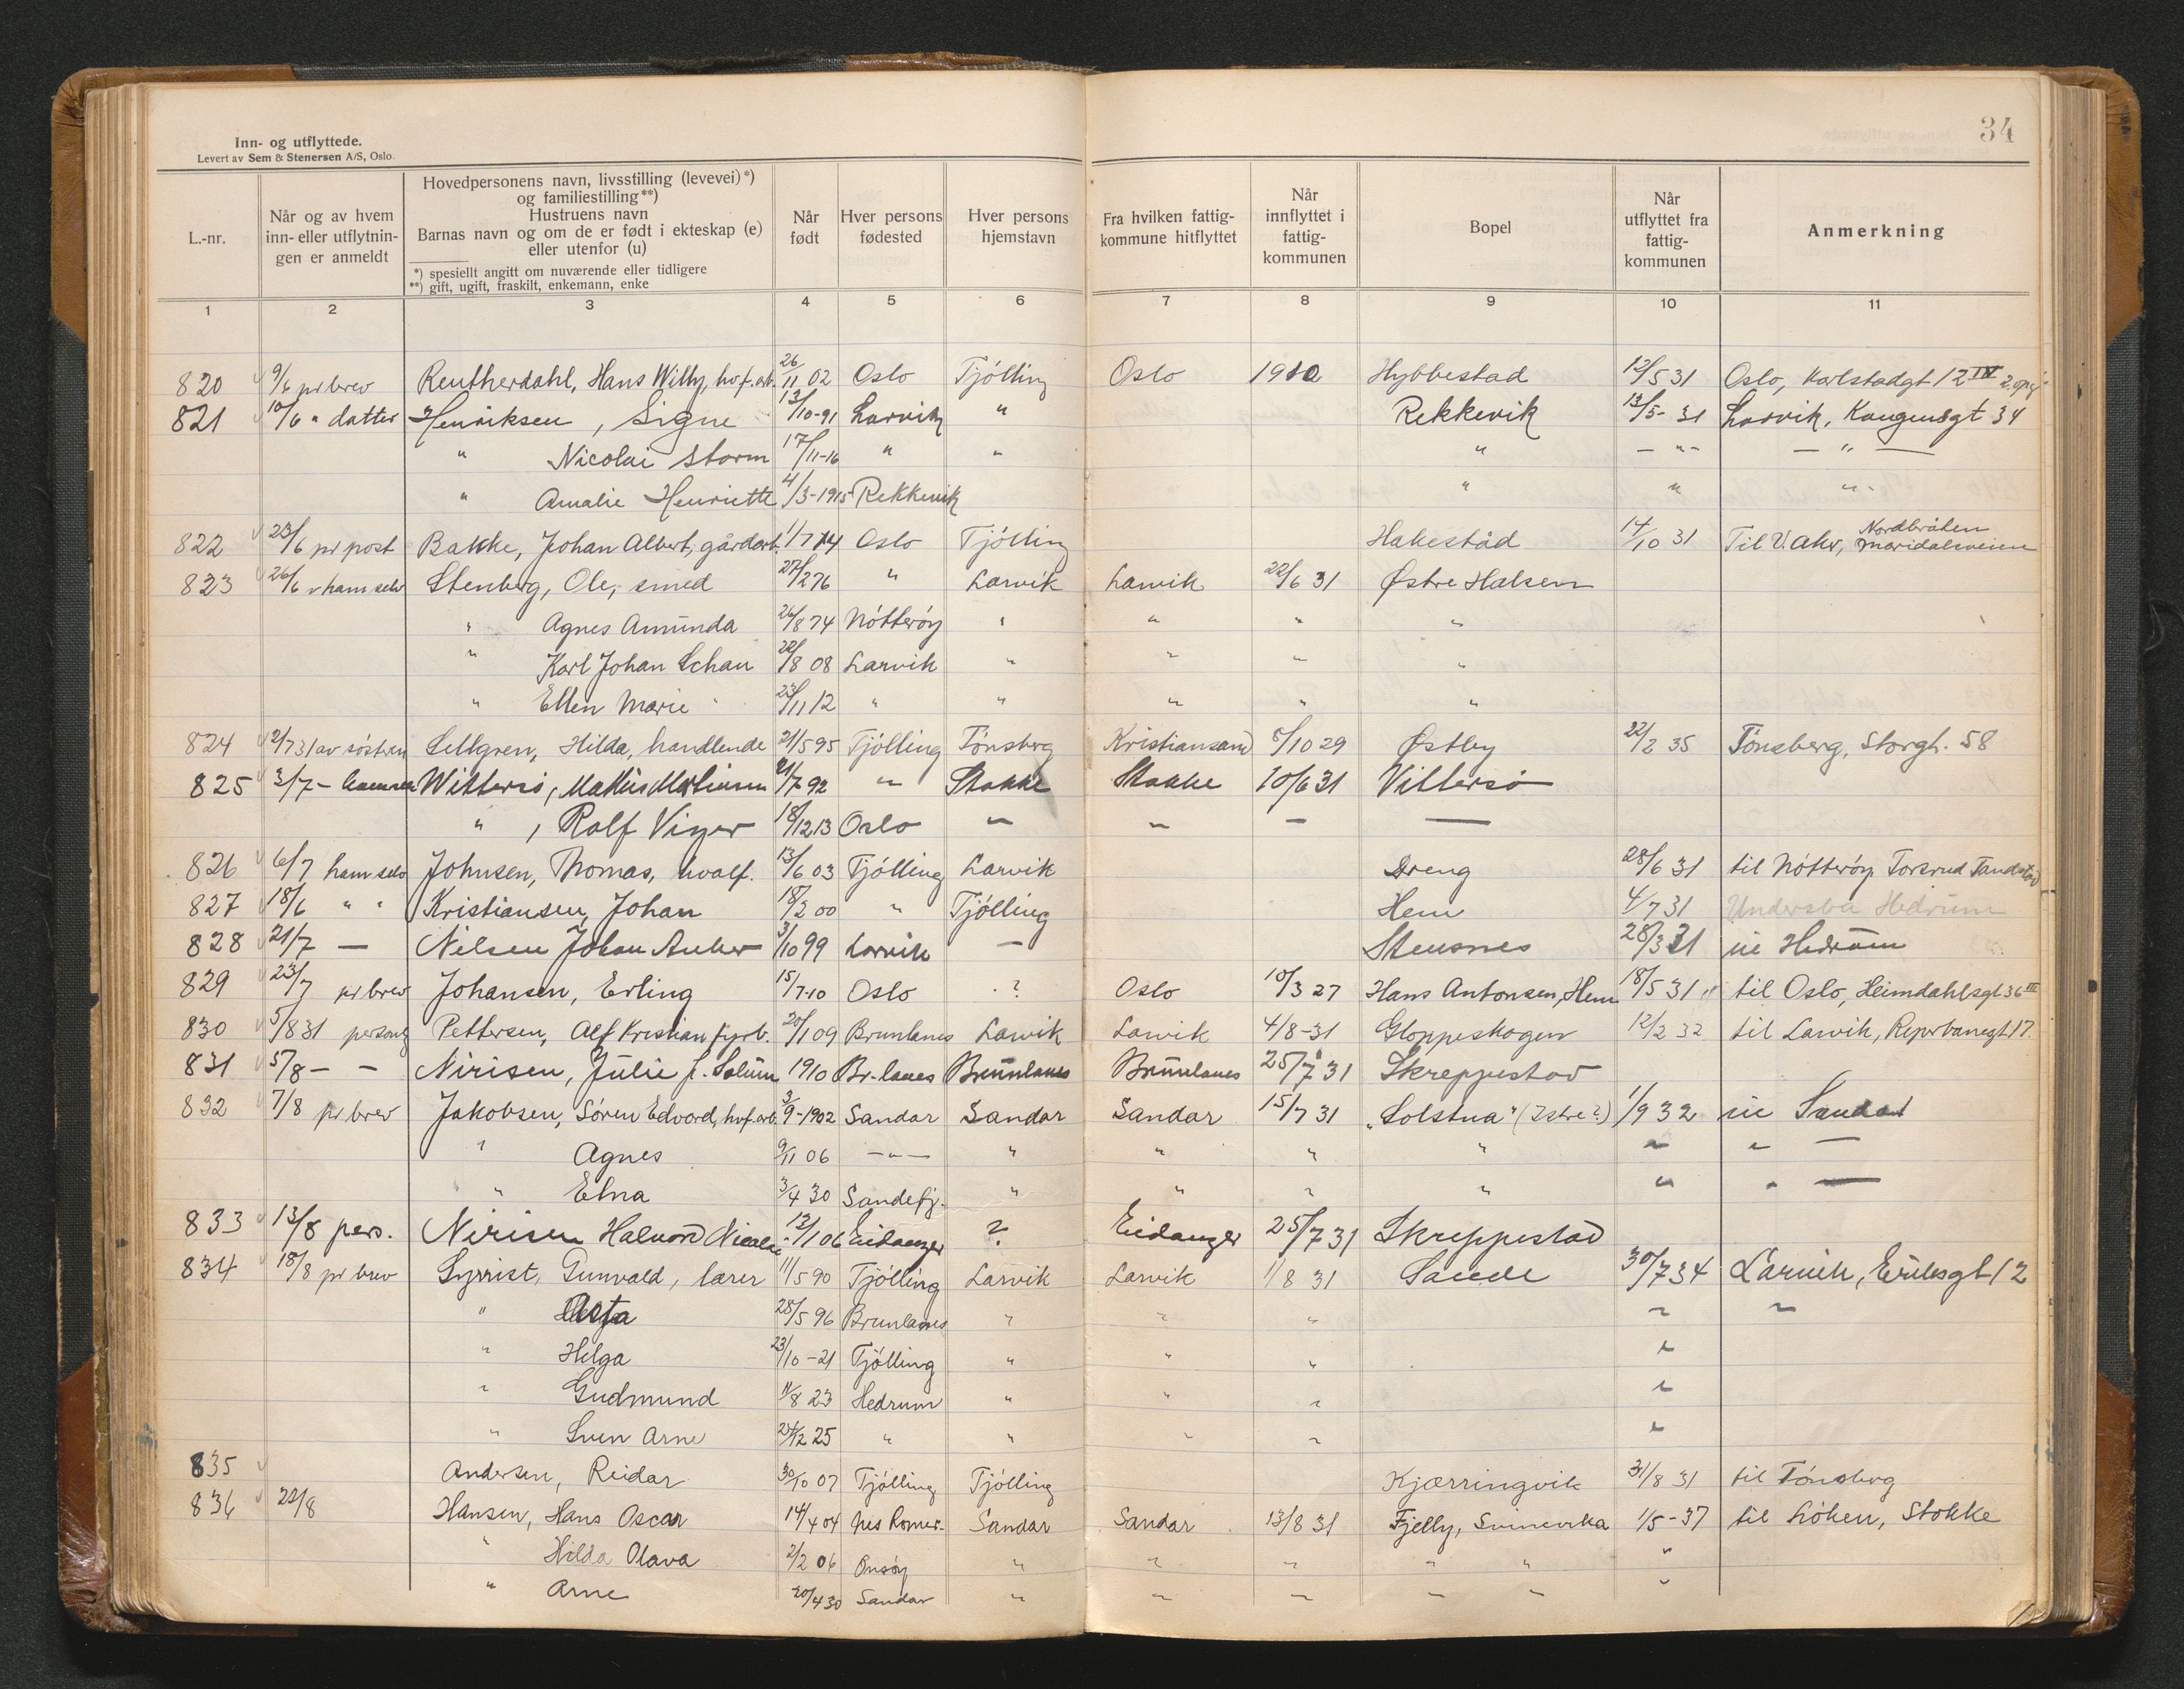 34
Inn- og utflyttede.
Levert av Sem & Stenersen A/S, Oslo.
L.-nr. Når og av hvem inn- eller utflytningen er anmeldt Hovedpersonens navn, livsstilling (levevei)*) og familiestilling**) Hustruens navn Barnas navn og om de er født i ekteskap (e) eller utenfor (u) *) spesiellt angitt om nuværende eller tidligere **) gift, ugift, fraskilt, enkemann, enke Når født Hver persons fødested Hver persons hjemstavn Fra hvilken fattigkommune hitflyttet Når innflyttet i fattigkommunen Bopel Når utflyttet fra fattigkommunen Anmerkning
1 2 3 4 5 6 7 8 9 10 11
820 9/6 pr brev Reutherdahl, Hans Willy, hvf.arb. 26/11 02 Oslo Tjölling Oslo 1910 Hybbestad 12/5 31 Oslo, Karlstadgt 12 IV 2 opg.
821 10/6 " datter Henriksen, Signe 13/10-91 Larvik " Rekkevik 13/5-31 Larvik, Kongensgt 34
" Nicolai Storm 17/11-16 " " " — "- — " —
" Amalie Henriette 4/3-1915 Rekkevik " " "-
822 23/6 pr post Bakke, Johan Albert, gårdarb. 1/7 14 Oslo Tjölling Hakestad 14/10 31 Til V. Aker, Nordbråten Maridalsveien
823 26/6 v ham selv Stenberg, Ole, smed 27/2 76 " Larvik Larvik 22/6 31 Østre Halsen
" Agnes Amunda 26/8 74 Nötteröy " " " "
" Karl Johan Schau 22/8 08 Larvik " " " "
" Ellen Marie " 23/11 12 " " " " "
824 2/7 31 av söstren Sellgren, Hilda, handlende 21/5 95 Tjölling Tönsberg Kristiansand 8/10 29 Østby 22/2 35 Tönsberg, Storgt. 58
825 3/7 - Wittersö, 21/7 92 " Stokke Stokke 10/6 31 Vittersö
", Rolf Viger 18/12 13 Oslo " " — —
826 6/7 ham selv Johnsen, Thomas, hvalf. 13/6 03 Tjölling Larvik Dreng 28/6 31 til Nötteröy Torsrud
827 18/6 " " Kristiansen, Johan 18/2 00 " Tjölling Hem 4/7 31 Undersbo Hedrum
828 21/7 — Nilsen Johan Anker 3/10 99 Larvik — Stensnes 28/3 31 til Hedrum
829 23/7 pr brev Johansen, Erling 15/7-10 Oslo ? Oslo 10/3 27 Hans Antonsen, Hem 18/5 31 " til Oslo, Heimdahlsgt 36 III
830 5/8 31 personl Pettersen, Alf Kristian fyrb. 20/1 09 Brunlanes Larvik Larvik 4/8-31 Gloppeskogen 12/2 32 til Larvik, Reperbanegt 17.
831 5/8 — - Nirisen, Julie f. Solum 1910 Br.lanes Brunlanes Brunlanes 25/7 31 Skreppestad
832 7/8 pr brev Jakobsen, Sören Edvard, hvf.arb. 3/9-1902 Sandar Sandar Sandar 15/7 31 "Solstua" (Istre?) 1/9 32 til Sandar
" Agnes 9/11 06 — " — " " " " " " —
" Elna 3/4 30 Sandefj. " " " " " " —
833 13/8 pers. Nirisen Halvord Nicolai 12/1 06 Eidanger ? Eidanger 25/7 31 Skreppestad
834 18/8 pr brev Syrrist, Gunvald, lærer 11/5 90 Tjölling Larvik Larvik 1/8 31 Sande 30/7 34 Larvik, Eriksgt 12
" Asta 28/5 96 Brunlanes " " " " "
" Helga 23/10-21 Tjölling " " " "
" Gudmund 11/8 23 Hedrum " " " "
" Sven Arne 24/12 25 " " " " "
835 Andersen, Reidar 30/10 07 Tjölling Tjölling Kjærringvik 31/8 31 til Tönsberg
836 22/8 Hansen, Hans Oscar 14/4 04 Nes Romer. Sandar Sandar 13/8 31 Fjelly, Svinevika 1/5-37 til Löken, Stokke
" Hilda Olava 2/2 06 Onsöy " " " " " "
" Arne 20/4 30 Sandar " " " " " "